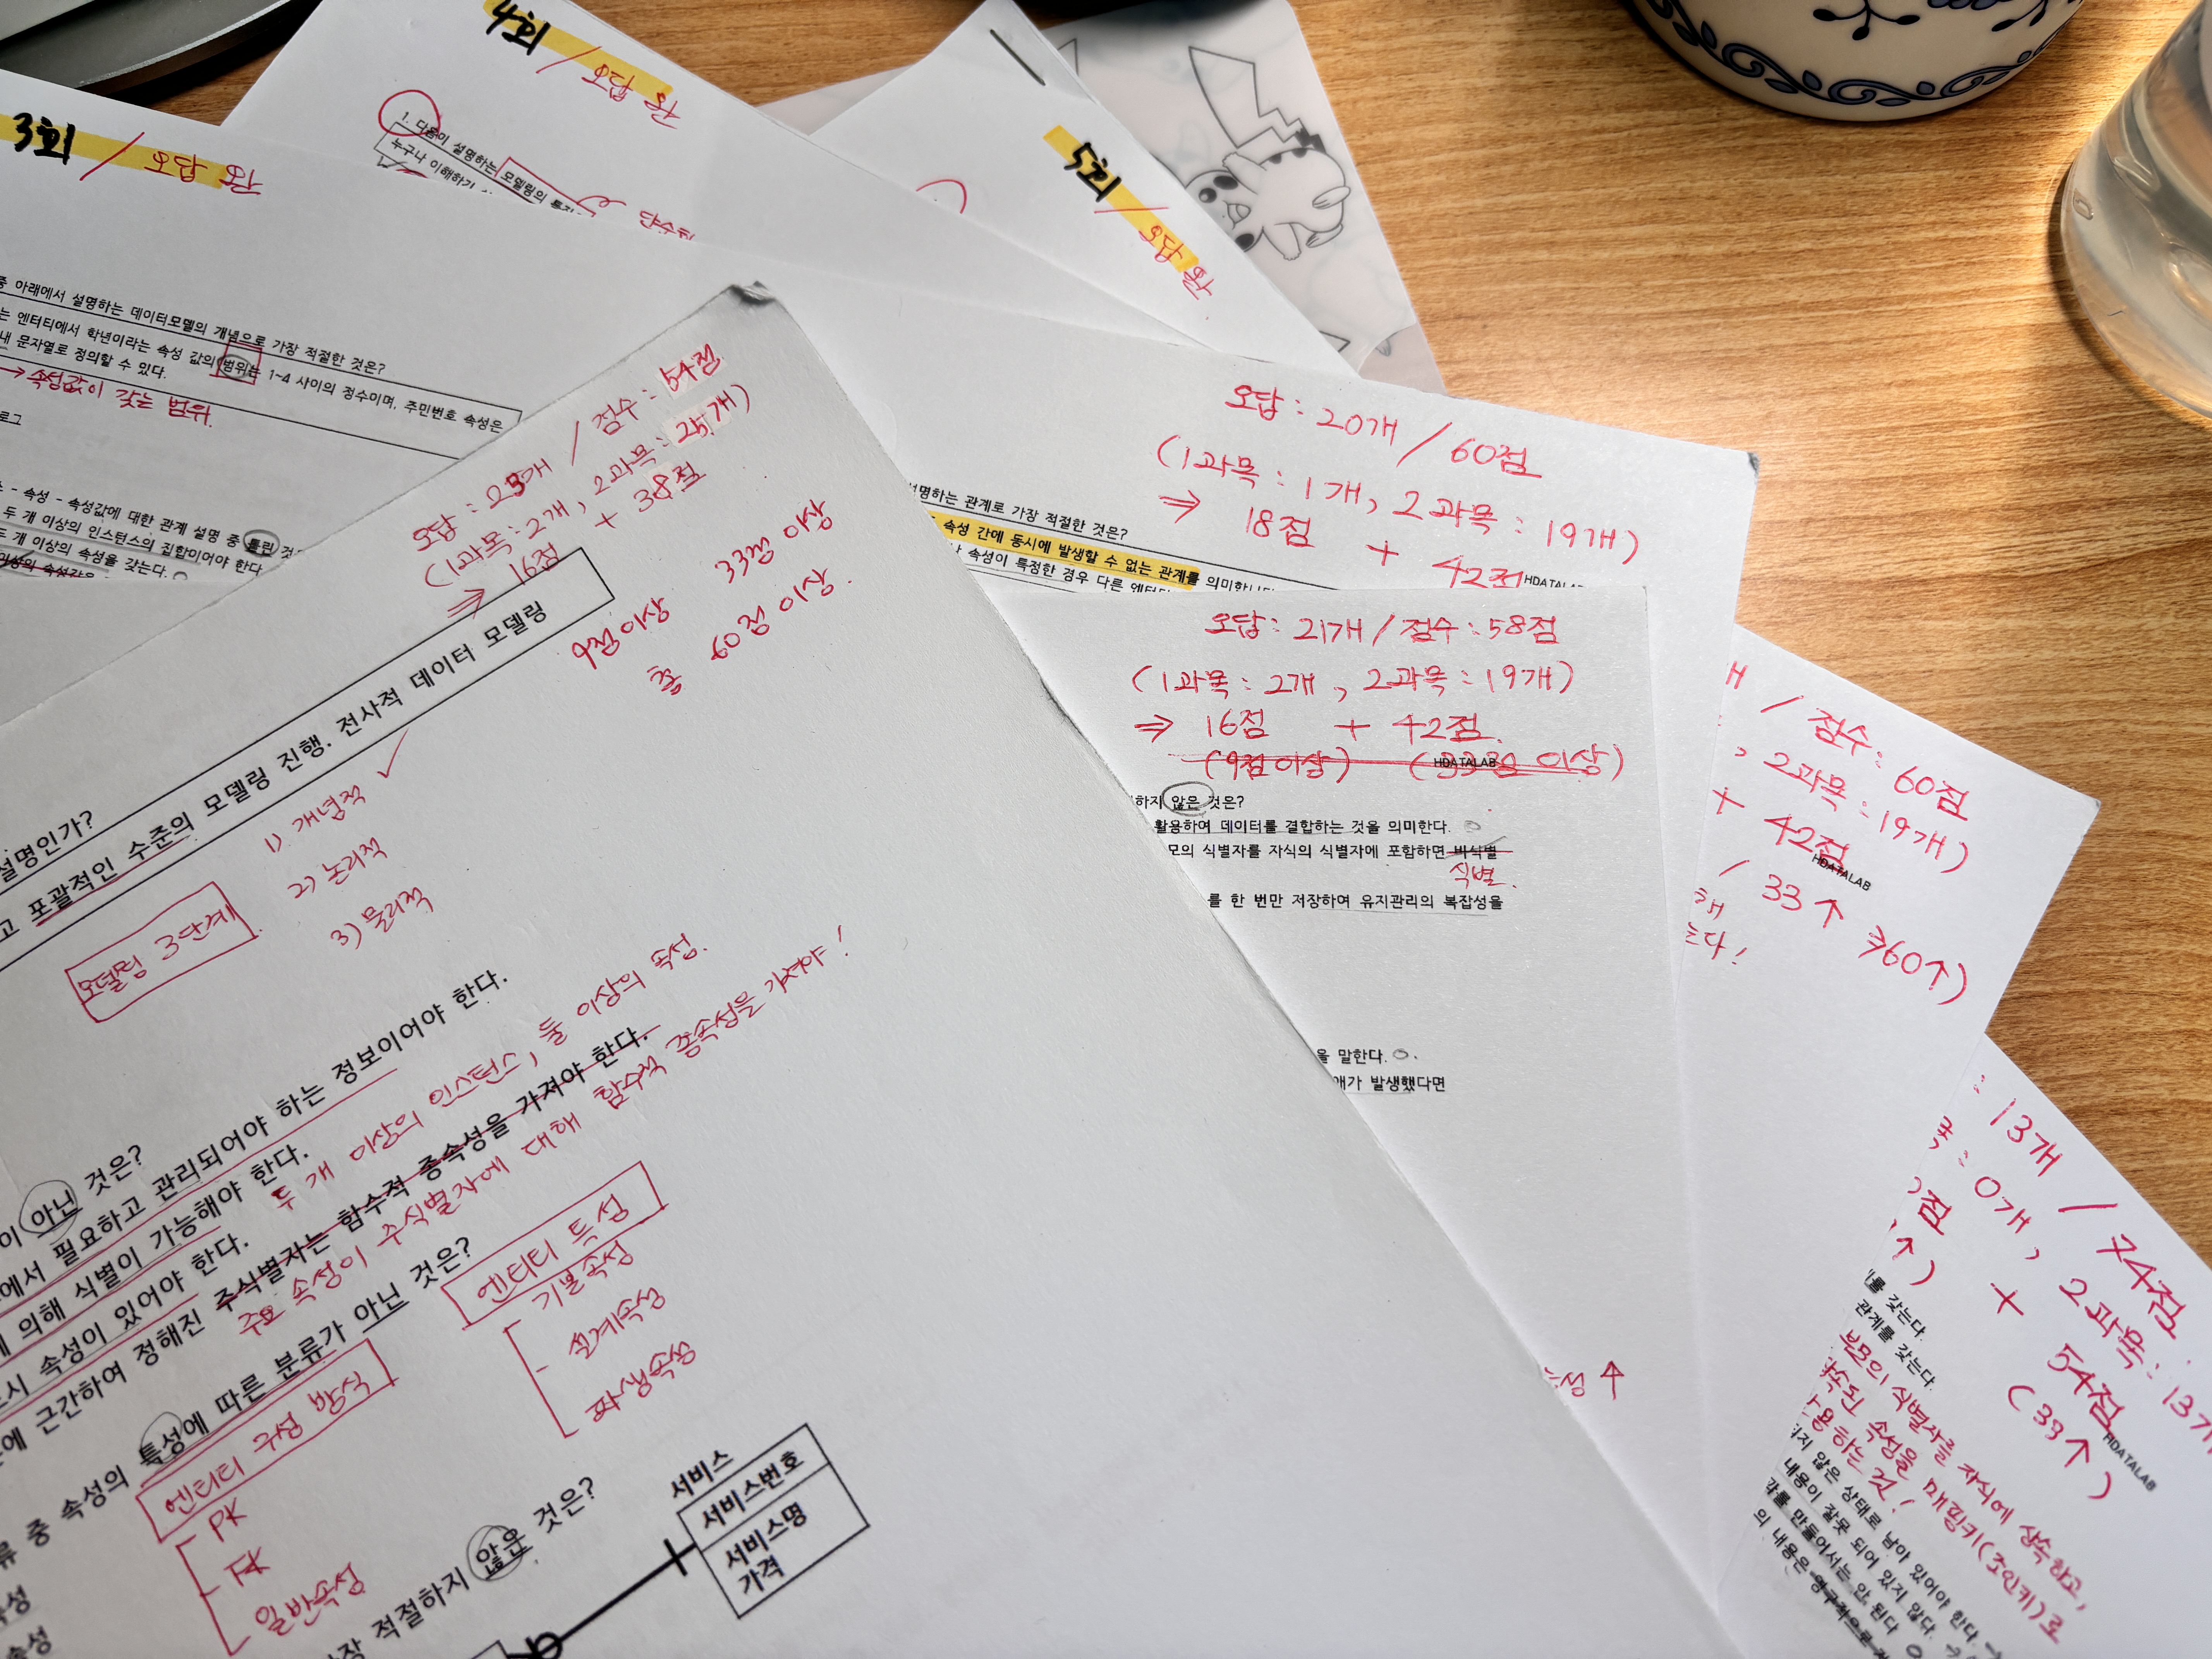 4회 / 오답 有
3회 / 오답 有
5회 / 오답 有
1. 다음이 설명하는 모델링의
누구나 이해하기
중 아래에서 설명하는 데이터모델의 개념으로 가장 적절한 것은?
는 엔터티에서 학년이라는 속성 값의 범위는 1~4 사이의 정수이며, 주민번호 속성은
내 문자열로 정의할 수 있다.
→ 속성값이 갖는 범위.
로그
- 속성 - 속성값에 대한 관계 설명 중 틀린
두 개 이상의 인스턴스의 집합이어야 한다
두 개 이상의 속성을 갖는다.
오답 : 23개 / 점수 : 54점
(1과목 : 2개, 2과목 : 개)
⇒ 16점 + 38점
9점 이상 33점 이상
총 60점 이상
설명인가?
고 포괄적인 수준의 모델링 진행. 전사적 데이터 모델링
모델링 3단계
1) 개념적 ✓
2) 논리적
3) 물리적
이 아닌 것은?
에서 필요하고 관리되어야 하는 정보이어야 한다.
에 의해 식별이 가능해야 한다.
두 개 이상의 인스턴스, 둘 이상의 속성.
시 속성이 있어야 한다.
에 근간하여 정해진 주식별자는 함수적 종속성을 가져야 한다.
주요 속성이 주식별자에 대해 함수적 종속성을 가져야!
류 중 속성의 특성에 따른 분류가 아닌 것은?
속성
속성
엔터티 구성 방식
PK
FK
일반속성
엔터티 특성
기본속성
설계속성
파생속성
장 적절하지 않은 것은?
서비스
서비스번호
서비스명
가격
오답 : 20개 / 60점
(1과목 : 1개, 2과목 : 19개)
⇒ 18점 + 42점
HDATALAB
설명하는 관계로 가장 적절한 것은?
속성 간에 동시에 발생할 수 없는 관계를 의미합니다
속성이 특정한 경우 다른 엔터티
오답 : 21개 / 점수 : 58점
(1과목 : 2개, 2과목 : 19개)
⇒ 16점 + 42점.
(9점 이상) (33점 이상)
HDATALAB
하지 않은 것은?
활용하여 데이터를 결합하는 것을 의미한다.
모의 식별자를 자식의 식별자에 포함하면 비식별
식별.
를 한 번만 저장하여 유지관리의 복잡성을
을 말한다.
애가 발생했다면
/ 점수 : 60점
, 2과목 : 19개)
+ 42점
HDATALAB
/ 33↑ 총60↑)
: 13개 / 74점
: 0개, 2과목 : 13개
점 + 54점
↑) (33↑)
HDATALAB
를 갖는다.
관계를 갖는다.
부모의 식별자를 자식에 상속하고,
상속된 속성을 매핑키(조인키)로
용하는 것!
지 않은 상태로 남아 있어야 한다.
내용이 잘못 되어 있지 않다.
를 만들어서는 안 된다
의 내용은 영구적으로